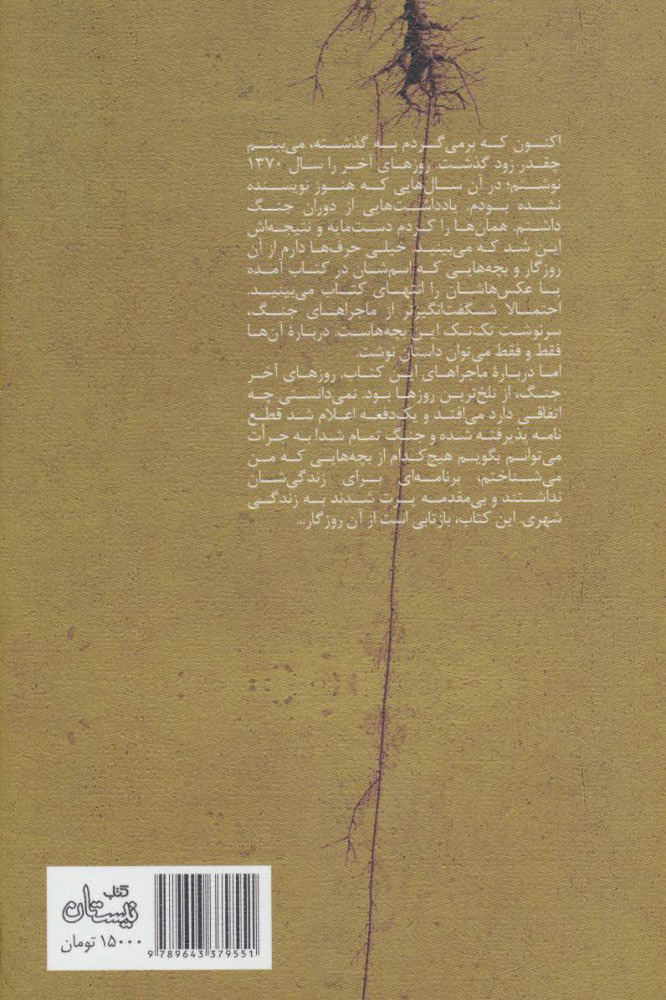 اکنون که برمی‌گردم به گذشته، می‌بینم
چقدر زود گذشت. روزهای آخر را سال ۱۳۷۰
نوشتم؛ در آن سال‌هایی که هنوز نویسنده
نشده بودم. یادداشت‌هایی از دوران جنگ
داشتم. همان‌ها را کردم دست‌مایه و نتیجه‌اش
این شد که می‌بینید. خیلی حرف‌ها دارم از آن
روزگار و بچه‌هایی که اسم‌شان در کتاب آمده
یا عکس‌هاشان را انتهای کتاب می‌بینید.
احتمالا شگفت‌انگیزتر از ماجراهای جنگ،
سرنوشت تک‌تک این بچه‌هاست. دربارهٔ آن‌ها
فقط و فقط می‌توان داستان نوشت.
اما دربارهٔ ماجراهای این کتاب. روزهای آخر
جنگ، از تلخ‌ترین روزها بود. نمی‌دانستی چه
اتفاقی دارد می‌افتد و یک‌دفعه اعلام شد قطع
نامه پذیرفته شده و جنگ تمام شد! به جرأت
می‌توانم بگویم هیچ‌کدام از بچه‌هایی که من
می‌شناختم، برنامه‌ای برای زندگی‌شان
نداشتند و بی‌مقدمه پرت شدند به زندگی
شهری. این کتاب، بازتابی است از آن روزگار...
کتاب
نیستان
۱۵۰۰۰ تومان
9 789643 379551